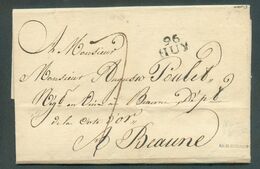 96
HUY
A Monsieur
Monsieur Auguste Poulet
Négt. en vins a Beaune Dépt.
de la Cote d'or
A Beaune